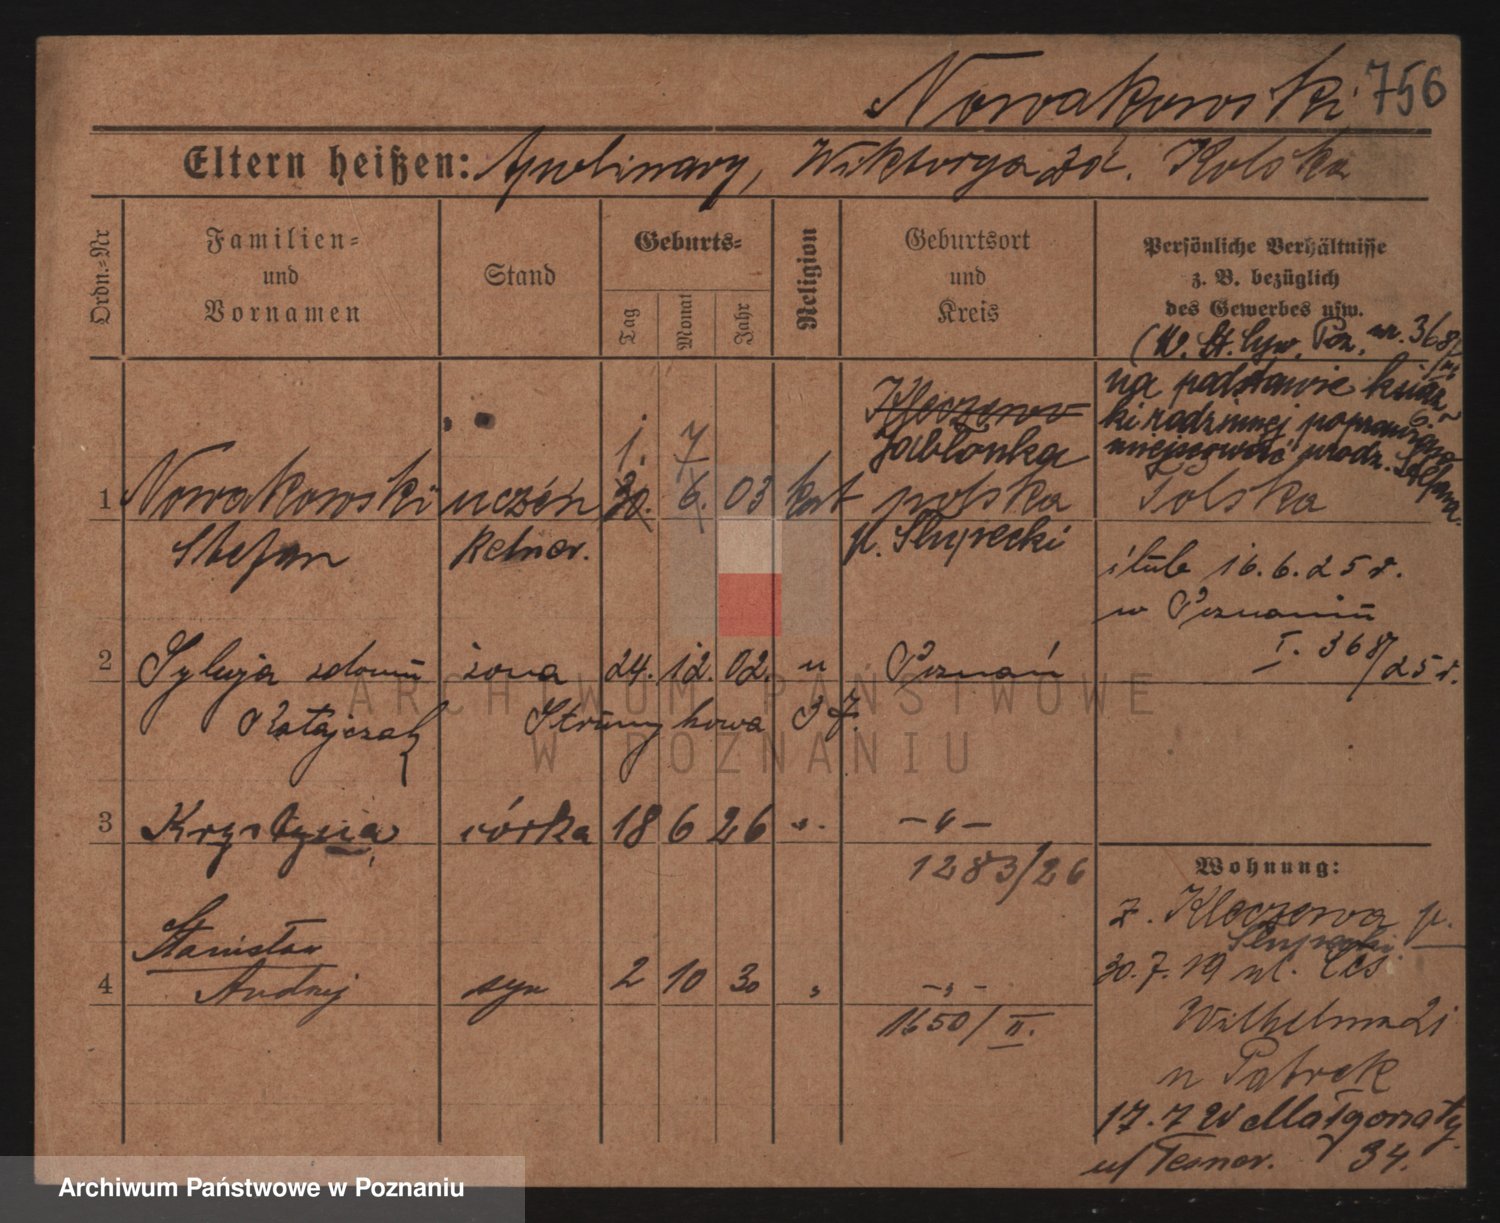 Nowakowski 756
Eltern heißen: Apolinary, Wiktorya zd. Kolska
Ordn.-Nr
Familien- und Vornamen
Stand
Geburts-
Tag
Monat
Jahr
Religion
Geburtsort und Kreis
Persönliche Verhältnisse
z. B. bezüglich
des Gewerbes usw.
(W. St. Cyw. Poz. nr. 368/
na podstawie książ-
ki rodzinnej poprawiono
miejscowość urodz. Stefana.
Kleczewo
Jabłonka
1. 7
1 Nowakowski uczeń 30. 6. 03 kat polska Polska
Stefan kelner. p. Słupecki
ślub 16.6.25 r.
w Poznaniu
I. 368/25 r.
2 Sylwja z domu żona 24. 12. 02. " Poznań
Ratajczak Strumykowa 37.
3 Krystyna córka 18 6 26 " - " -
1283/26
Wohnung:
z. Kleczewa p.
Słupecki
Stanisław
30.7.19 ul.
4 Andrzej syn 2 10 30 " - " -
1650/II.
Wilhelma 21
u Patrek
17.7 W Małgorzaty
34.
ARCHIWUM PAŃSTWOWE
W POZNANIU
Archiwum Państwowe w Poznaniu